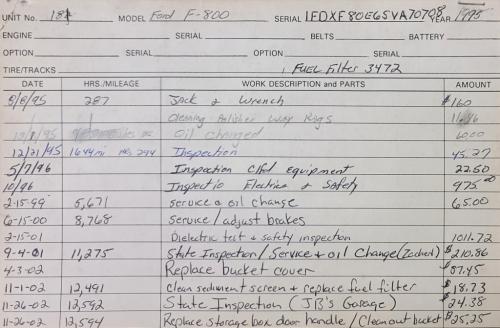 UNIT No. 181 MODEL Ford F-800 SERIAL 1FDXF80E6SVA70708 YEAR 1995
ENGINE SERIAL BELTS BATTERY
OPTION SERIAL OPTION SERIAL
TIRE/TRACKS Fuel Filter 3472
DATE HRS./MILEAGE WORK DESCRIPTION and PARTS AMOUNT
8/8/95 287 Jack & Wrench $160
Cleaning Polisher Rigs
Oil changed 60.00
12/21/95 1644 mi Hrs 294 Inspection 45.27
5/7/96 Inspection equipment 22.50
10/96 Inspectio Electrica & Safety 975.00
2-15-99 5,671 Service & oil change 65.00
6-15-00 8,768 service/adjust brakes
2-15-01 Dielectric test & safety inspection 1011.72
9-4-01 11,275 State Inspection/Service & oil Change (Zacherl) $210.86
4-3-02 Replace bucket cover $87.45
11-1-02 12,491 Clean sediment screen & replace fuel filter $18.73
11-26-02 12,592 State Inspection (JB's Garage) $24.38
11-26-02 12,594 Replace storage box door handle/Clean out bucket $25.25